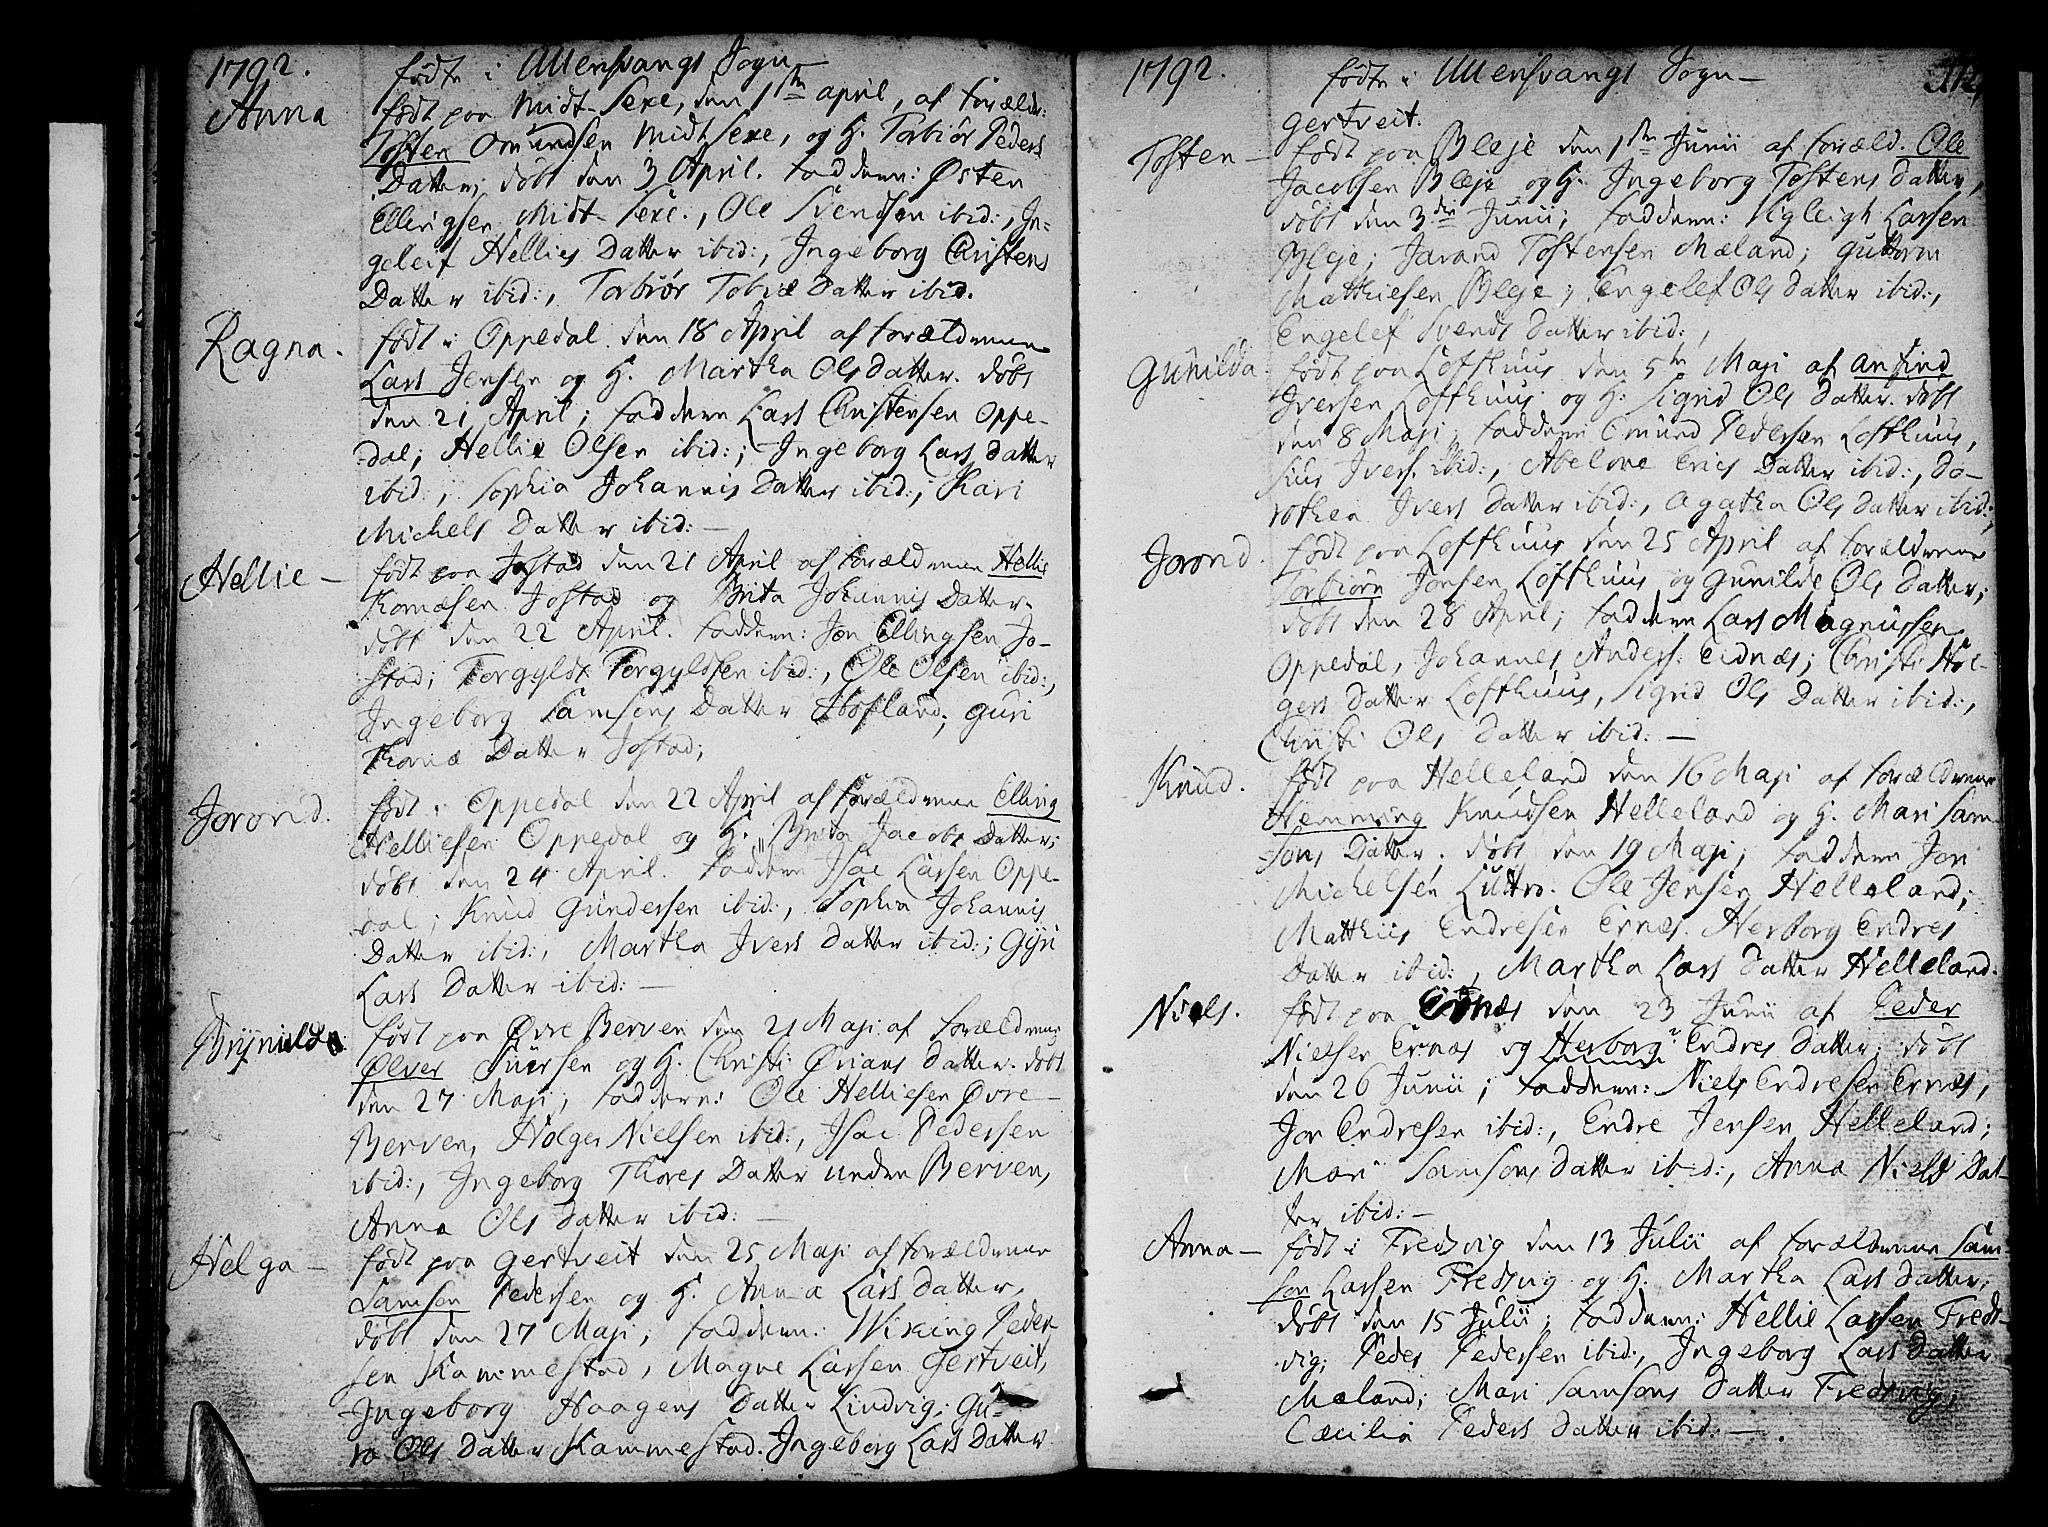 1792. fødte i Ullensvangs Sogn
Anna født paa Midt-Sexe, den 1ste april, af forældr:
Tosten Omundsen Midt Sexe, og H. Torbiør Peders
Datter; døbt den 3 April. Faddern: Østen
Ellingsen Midt-Sexe., Ole Svendsen ibid:, In-
geleif Hellies Datter ibid:, Ingeborg Christens
Datter ibid:, Torbiør Tobiæ Datter ibid.
Ragna. født i Oppedal den 18 April af forældrenne
Lars Jensen og H. Martha Ols datter. døbt
den 21 April; faddern Lars Christensen Oppe-
dal; Hellie Olsen ibid:; Ingeborg Lars datter
ibid:, Sophia Johannis Datter ibid:; Kari
Michels Datter ibid: —
Hellie — født paa Jostad den 21 April af forældrenne Hellie
Jostad og Brita Johannis Datter.
døbt den 22 April. faddern: Jon Ellingsen Jo-
stad; Torgyldt Torgyldsen ibid:, Ole Olsen ibid:,
Ingeborg Samsons Datter Hofland; Guri
Datter Jostad;
Jorond. født i Oppedal den 22 April af forældrenne Elling
Helliesen Oppedal og H. Brita Jacobs Datter;
døbt den 24 April. faddern Isac Larsen Oppe-
dal; Knud Gundersen ibid:, Sophia Johannis
Datter ibid:, Martha Ivers datter ibid:; Gyri
Lars Datter ibid: —
Brynilda født paa Øvre Berven den 21 Maji af forældrenne
Ølver Siursen og H. Christi datter. døbt
den 27 Maji; faddern: Ole Helliesen Øvre-
Berven, Holger Nielsen ibid:, Isac Pedersen
ibid:, Ingeborg Thores Datter under Berven,
Anna Ols datter ibid: —
Helga — født paa Gertveit den 25 Maji af forældrenne
Samson Pedersen og H. Anna Lars datter,
døbt den 27 Maji; faddern: Wiking Peder
sen Kammestad, Magne Larsen Gertveit,
Ingeborg Haagens Datter Lindvig; Gu-
ro Ols datter Kammestad. Ingeborg Lars Datter
1792. fødte i Ullensvangs Sogn —
Gertveit.
Tosten — født paa Bleje den 1ste Junii af foræld. Ole
Jacobsen Bleje og H. Ingeborg Tostens datter,
døbt den 3die Junii; faddern: Sigleigh Larsen
Bleje; Jarand Tostensen Mæland; Guttorm
Matthiesen Bleje; Engelef Ols datter ibid:,
Engelef Svends datter ibid:,
Gunilda født paa Lofthuus den 5te Maji af Anfind
Iversen Lofthuus og H. Sigrid Ols datter. døbt
den 8 Maji; faddern Omund Pedersen Lofthuus,
Sius Ivers. ibid:, Abelone Erics datter ibid:, Do-
rothea Ivers datter ibid:, Agatha Ols datter ibid:,
Jorond. født paa Lofthuus den 25 April af forældrenne
Torbiørn Jonsen Lofthuus og Gunilde Ols datter;
døbt den 28 April; faddern Lars Magnussen
Oppedal, Johannes Anders: Eidnæs; Christi Hol-
gers datter Lofthuus, Sigrid Ols datter ibid:,
Christi Ols datter ibid: —
Knud. født paa Helleland den 16 Maji af forældrenne
Hemming Knudsen Helleland og H. Mari Sam-
sons Datter. døbt den 19 Maji; faddern Jon
Michelsen Luttro. Ole Jensen Helleland;
Matthiis Endresen Ernæs. Herborg Endres
Datter ibid:, Martha Lars datter Helleland.
Niels. født paa den 23 Junii af Peder
Nielsen Ernæs og Herborg Endres datter; døbt
den 26 Junii; faddern: Niels Endresen Ernæs,
Jon Endresen ibid:, Endre Jensen Helleland;
Mari Samsons datter ibid:, Anna Niels Dat-
ter ibid: —
Anna — født i Fredsvig den 13 Julii af forældrenne Sam-
son Larsen Fredsvig og H. Martha Lars datter;
døbt den 15 Julii; faddern: Hellie Larsen Freds-
vig; Peder Pedersen ibid:, Ingeborg Lars datter
Mæland; Mari Samsons datter Fredsvig;
Cæcilia Peders datter ibid: — .